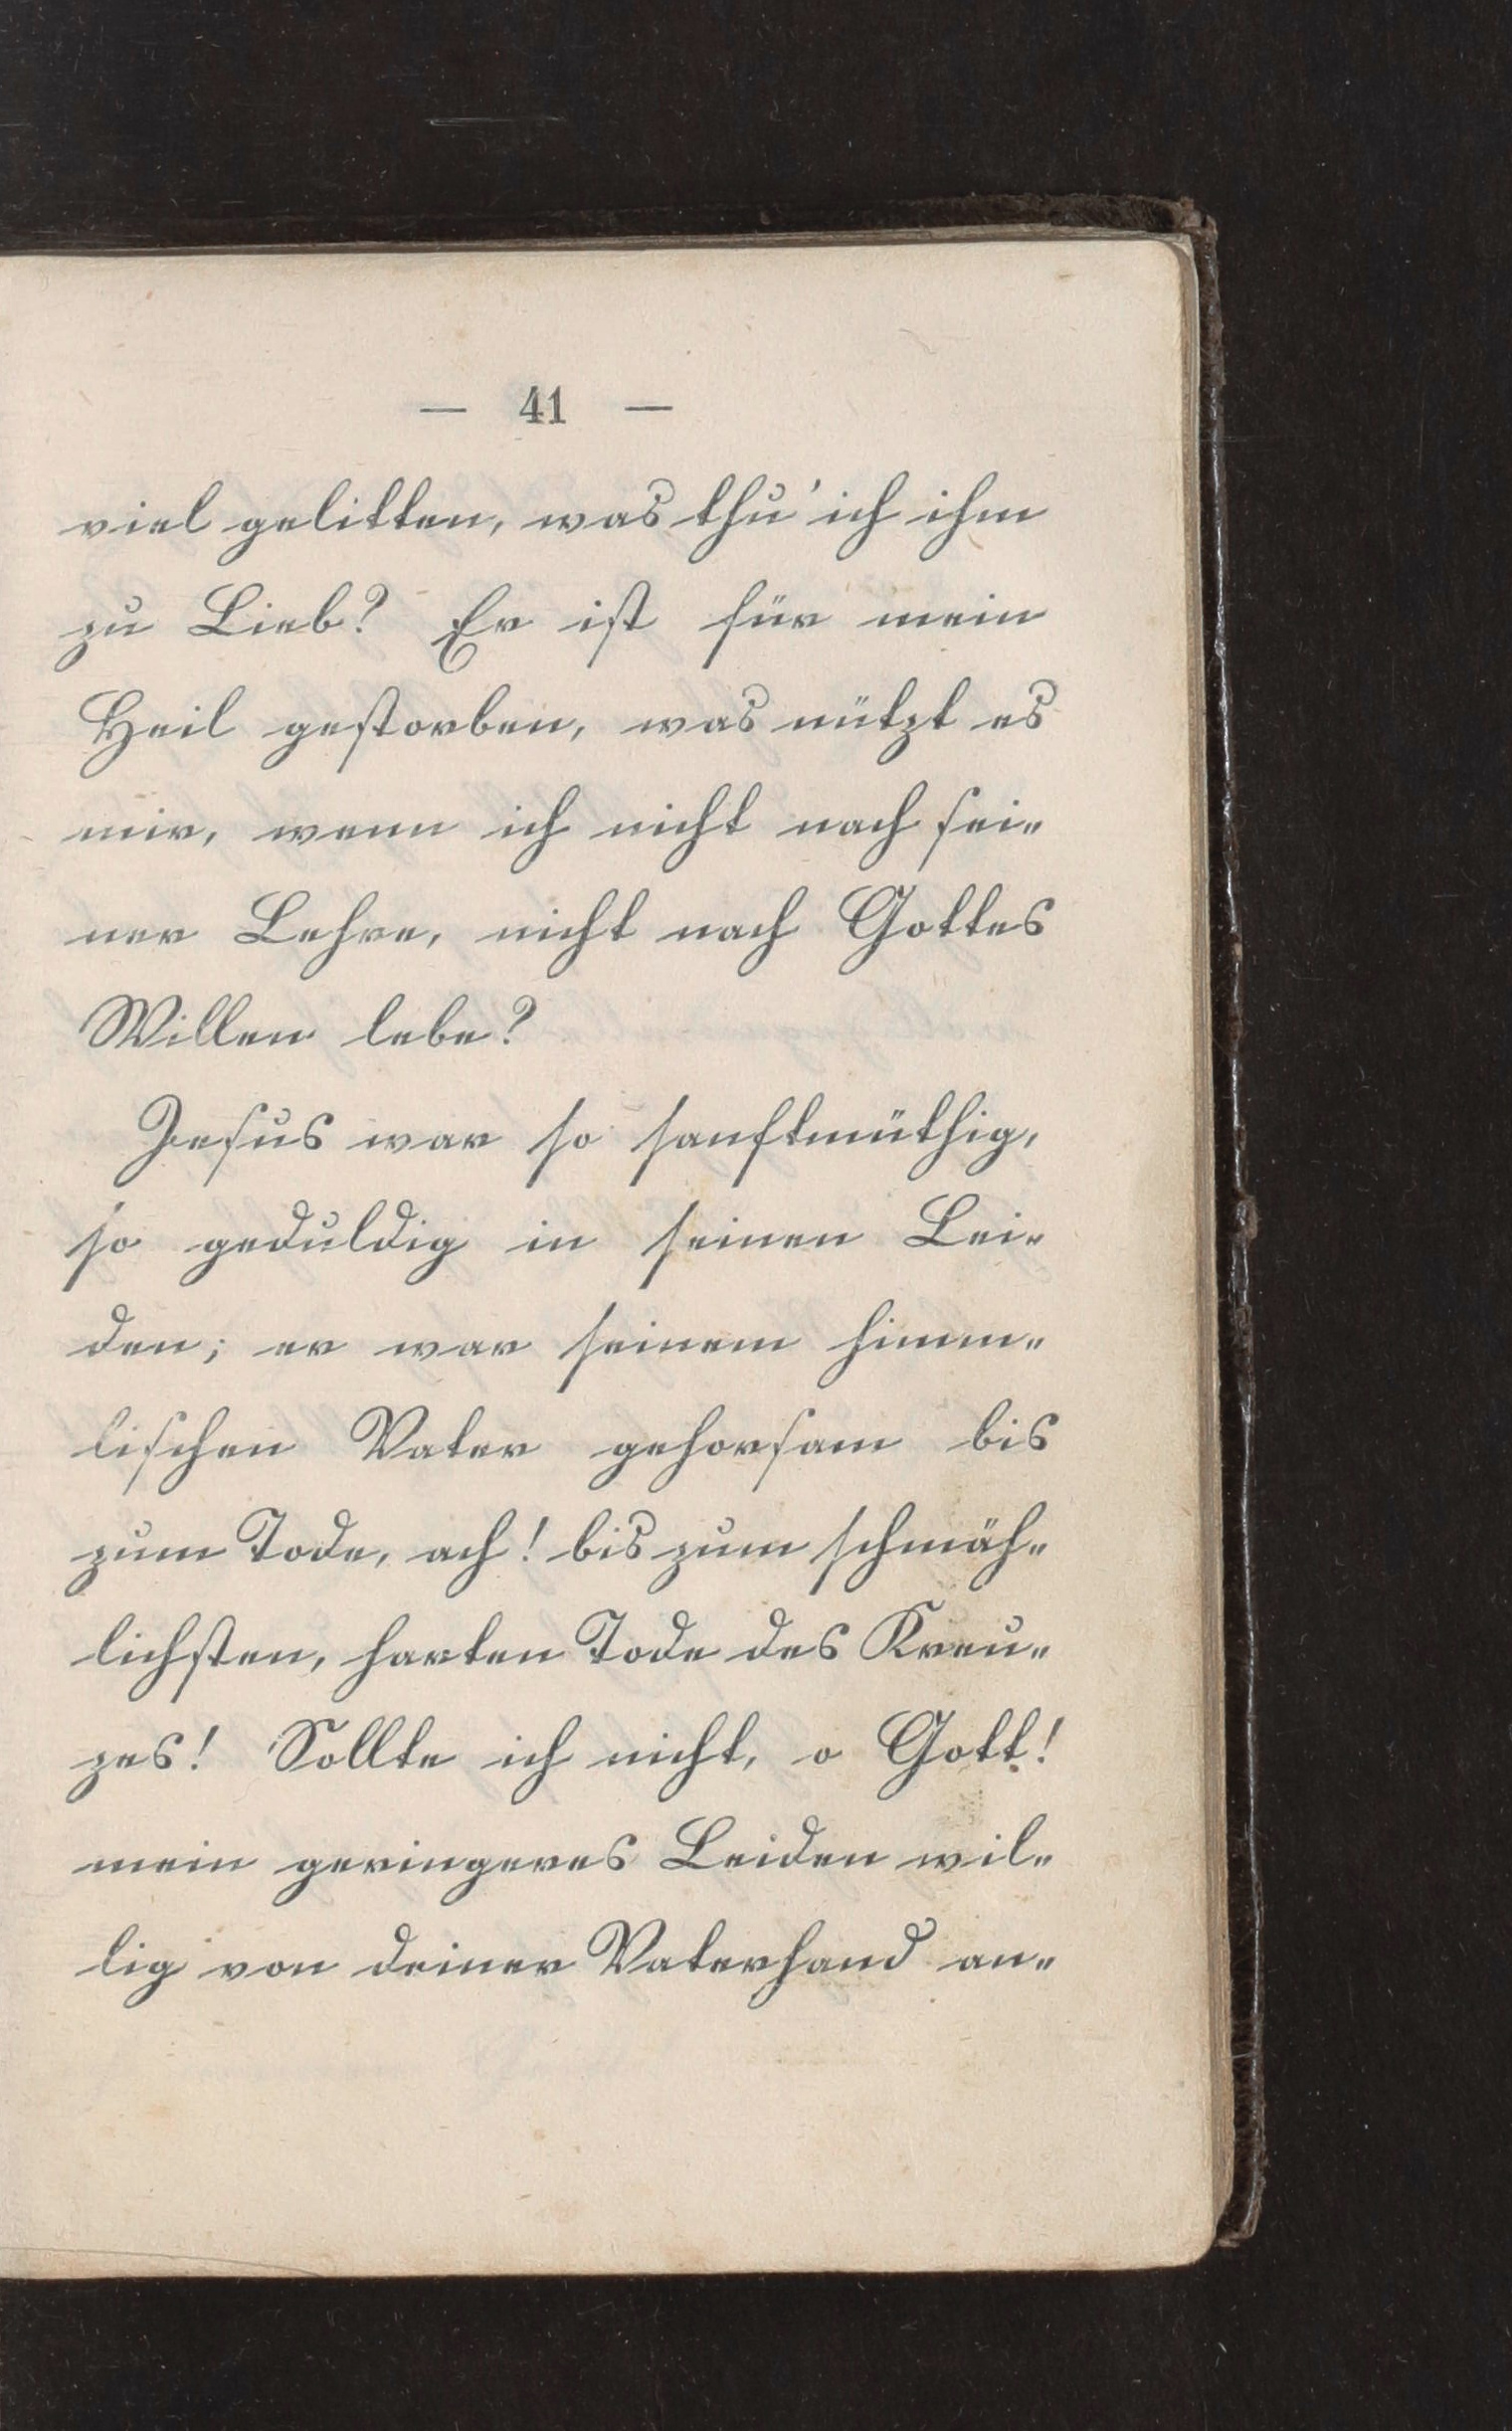 — 41 —
viel gelitten, was thu' ich ihm
zu Lieb? Er ist für mein
Heil gestorben, was nützt es
mir, wenn ich nicht nach sei-
ner Lehre, nicht nach Gottes
Willen lebe?
Jesus war so sanftmüthig,
so geduldig in seinen Lei-
den; er war seinem himm-
lischen Vater gehorsam bis
zum Tode, ach! bis zum schmäh-
lichsten, harten Tode des Kreu-
zes! Sollte ich nicht, o Gott!
mein geringeres Leiden wil-
lig von deiner Vaterhand an-